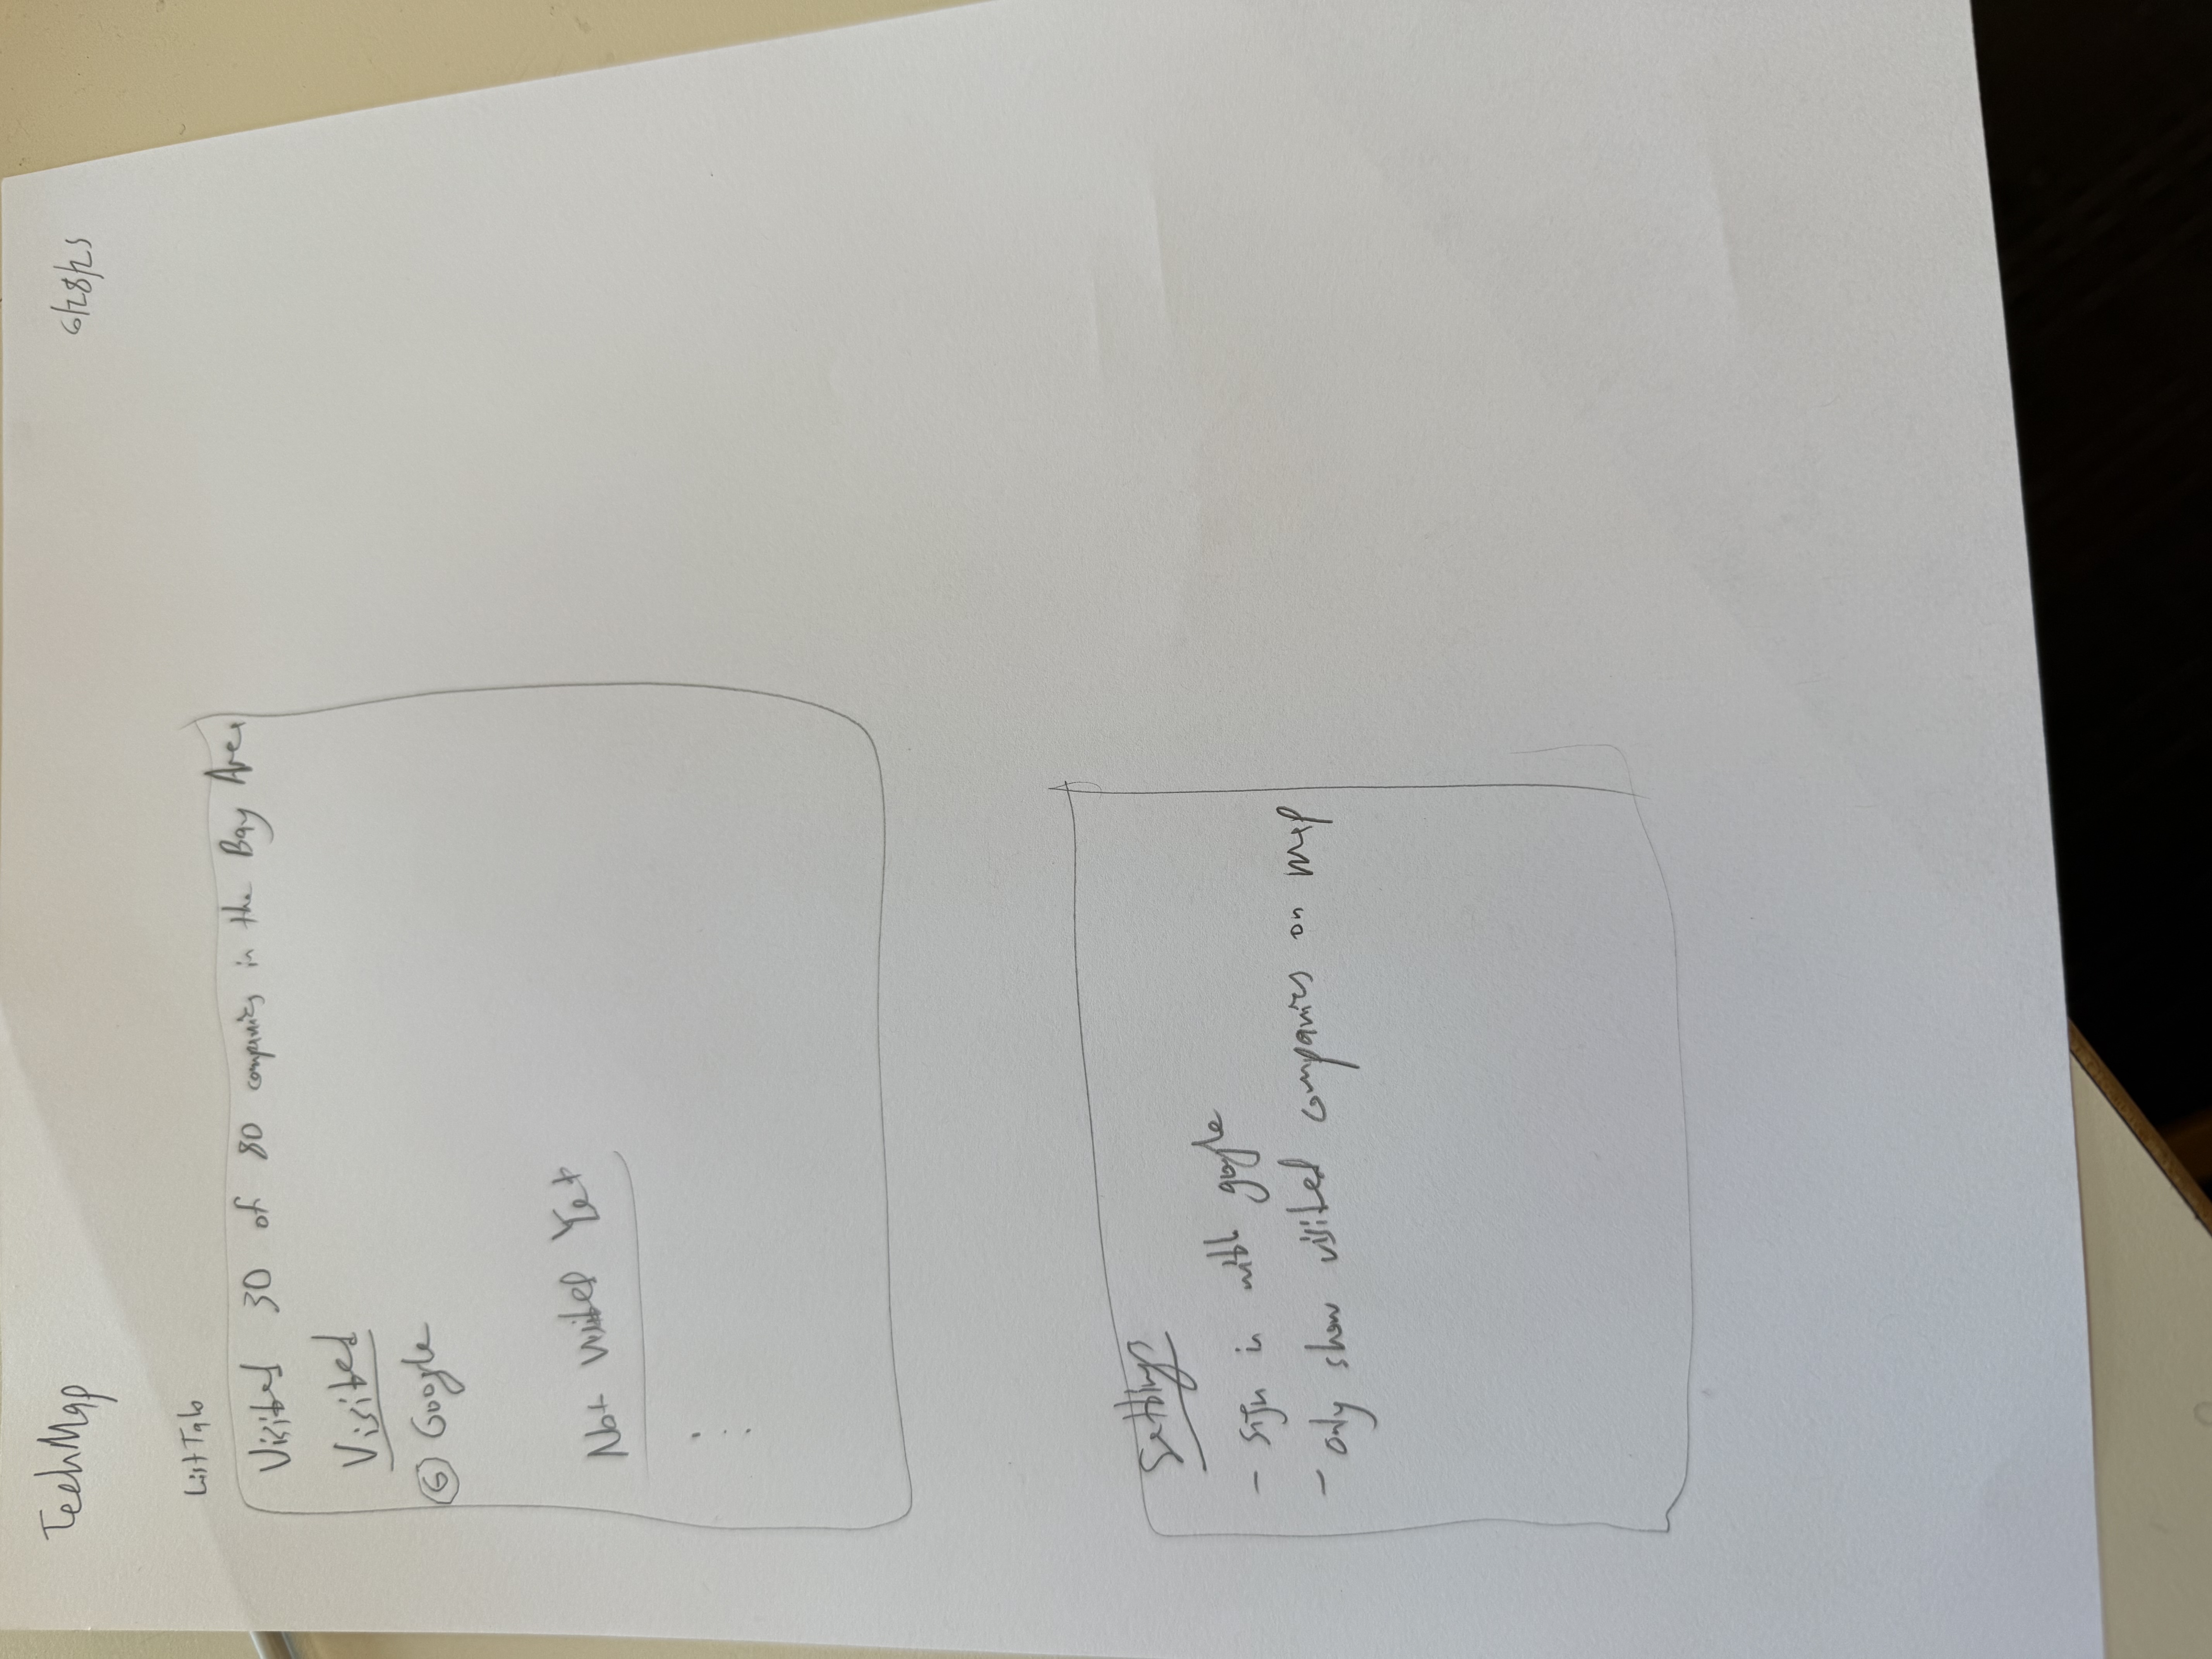 TechMap
6/28/25
List Tab
Visited 30 of 80 companies in the Bay Area
Visited
G Google
Not Visited Yet
Settings
- Sign in with google
- only show visited companies on map